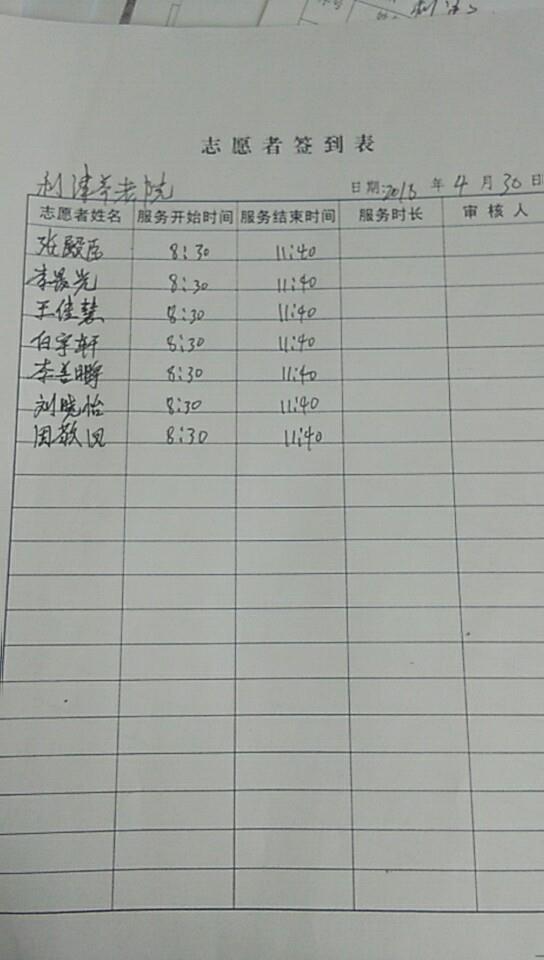 志愿者签到表
利津养老院
日期:2016 年 4 月 30 日
志愿者姓名 服务开始时间 服务结束时间 服务时长 审核人
张殿臣 8:30 11:40
李晨光 8:30 11:40
王佳慧 8:30 11:40
白宇轩 8:30 11:40
李善 8:30 11:40
刘晓怡 8:30 11:40
周敬 8:30 11:40